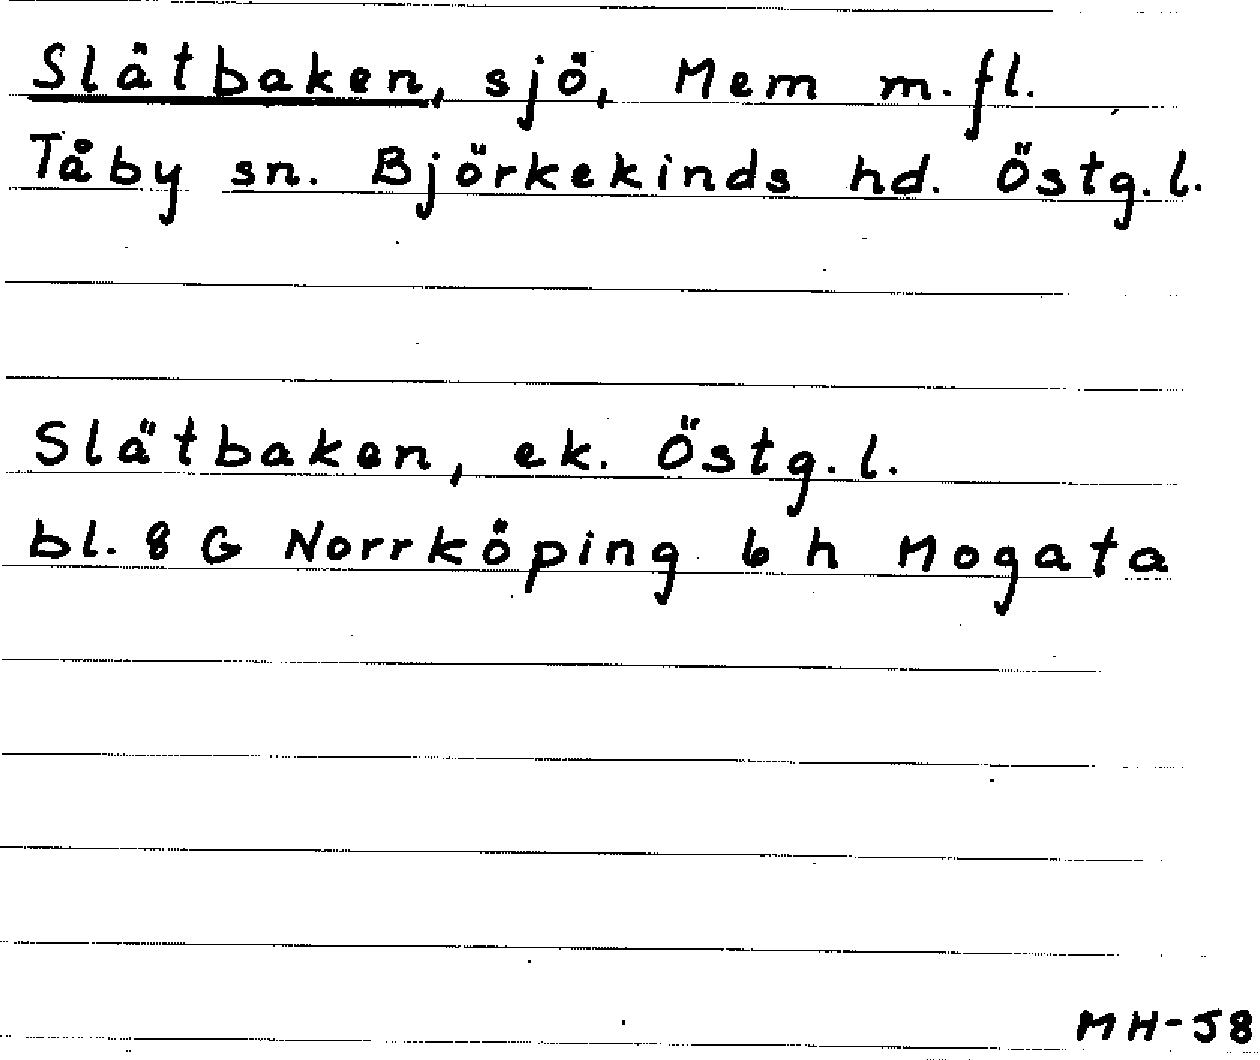 Slätbaken, sjö, Mem m.fl.
Tåby sn. Björkekinds hd. Östg.l.
Slätbaken, ek. Östg.l.
bl. 8 G Norrköping 6 h Mogata
MH-58